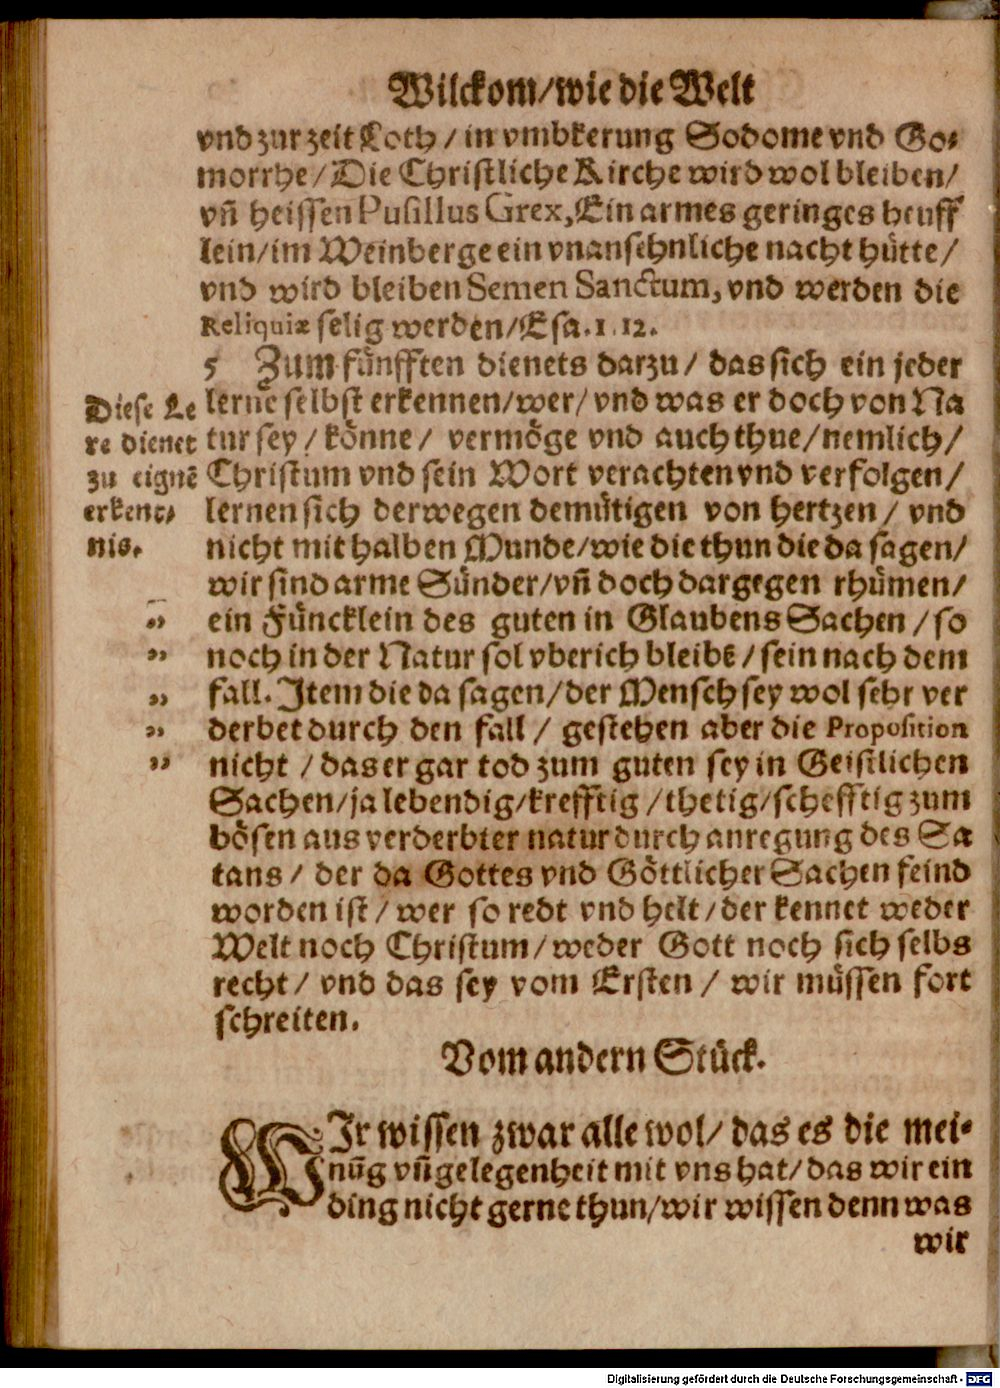 Wilckom/wie die Welt
vnd zur zeit Loth / in vmbkerung Sodome vnd Go⸗
morrhe / Die Christliche Kirche wird wol bleiben /
vñ heissen Pusillus Grex, Ein armes geringes heuff
lein / im Weinberge ein vnansehnliche nacht hütte /
vnd wird bleiben Semen Sanctum, vnd werden die
Reliquiæ selig werden / Esa. 1. 12.
5 Zum fünfften dienets darzu / das sich ein jeder
Diese Le
re dienet
zu eignē
erkent⸗
nis.
lerne selbst erkennen / wer / vnd was er doch von Na
tur sey / könne / vermöge vnd auch thue / nemlich /
Christum vnd sein Wort verachten vnd verfolgen /
lernen sich derwegen demütigen von hertzen / vnd
nicht mit halben Munde / wie die thun die da sagen /
wir sind arme Sünder / vñ doch dargegen rhümen /
„ ein Füncklein des guten in Glaubens Sachen / so
„ noch in der Natur sol vberich bleibē / sein nach dem
„ fall. Item die da sagen / der Mensch sey wol sehr ver
„ derbet durch den fall / gestehen aber die Proposition
„ nicht / das er gar tod zum guten sey in Geistlichen
Sachen / ja lebendig / krefftig / thetig / schefftig zum
bösen aus verderbter natur durch anregung des Sa
tans / der da Gottes vnd Göttlicher Sachen feind
worden ist / wer so redt vnd helt / der kennet weder
Welt noch Christum / weder Gott noch sich selbs
recht / vnd das sey vom Ersten / wir müssen fort
schreiten.
Vom andern Stück.
WIr wissen zwar alle wol / das es die mei⸗
nūg vñ gelegenheit mit vns hat / das wir ein
ding nicht gerne thun / wir wissen denn was
wir
Digitalisierung gefördert durch die Deutsche Forschungsgemeinschaft - DFG